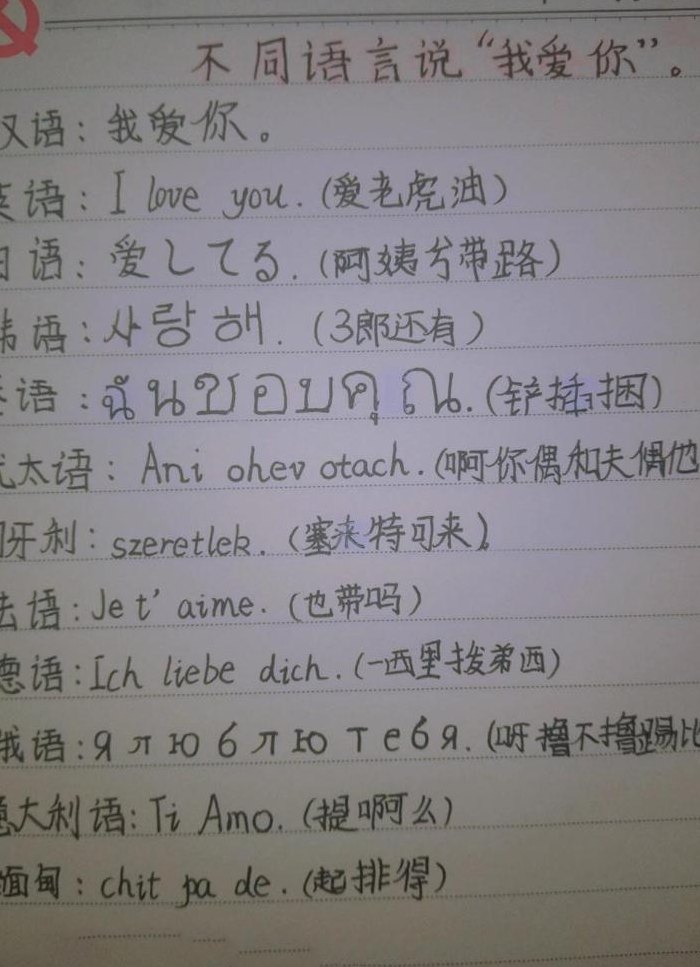 不同语言说“我爱你”。
汉语：我爱你。
英语：I love you.（爱老虎油）
日语：爱してる.（阿姨兮带路）
韩语：사랑해.（3郎还有）
语：ฉันชอบคุณ.（铲插捆）
尤太语：Ani ohev otach.（啊你偶和夫偶他
牙利：szeretlek.（塞来特可来）
法语：Je t'aime.（也带吗）
德语：Ich liebe dich.（一西里拨弟西）
俄语：я люблю тебя.（呀撸不撸踢比
意大利语：Ti Amo.（提啊么）
缅甸：chit pa de.（起排得）